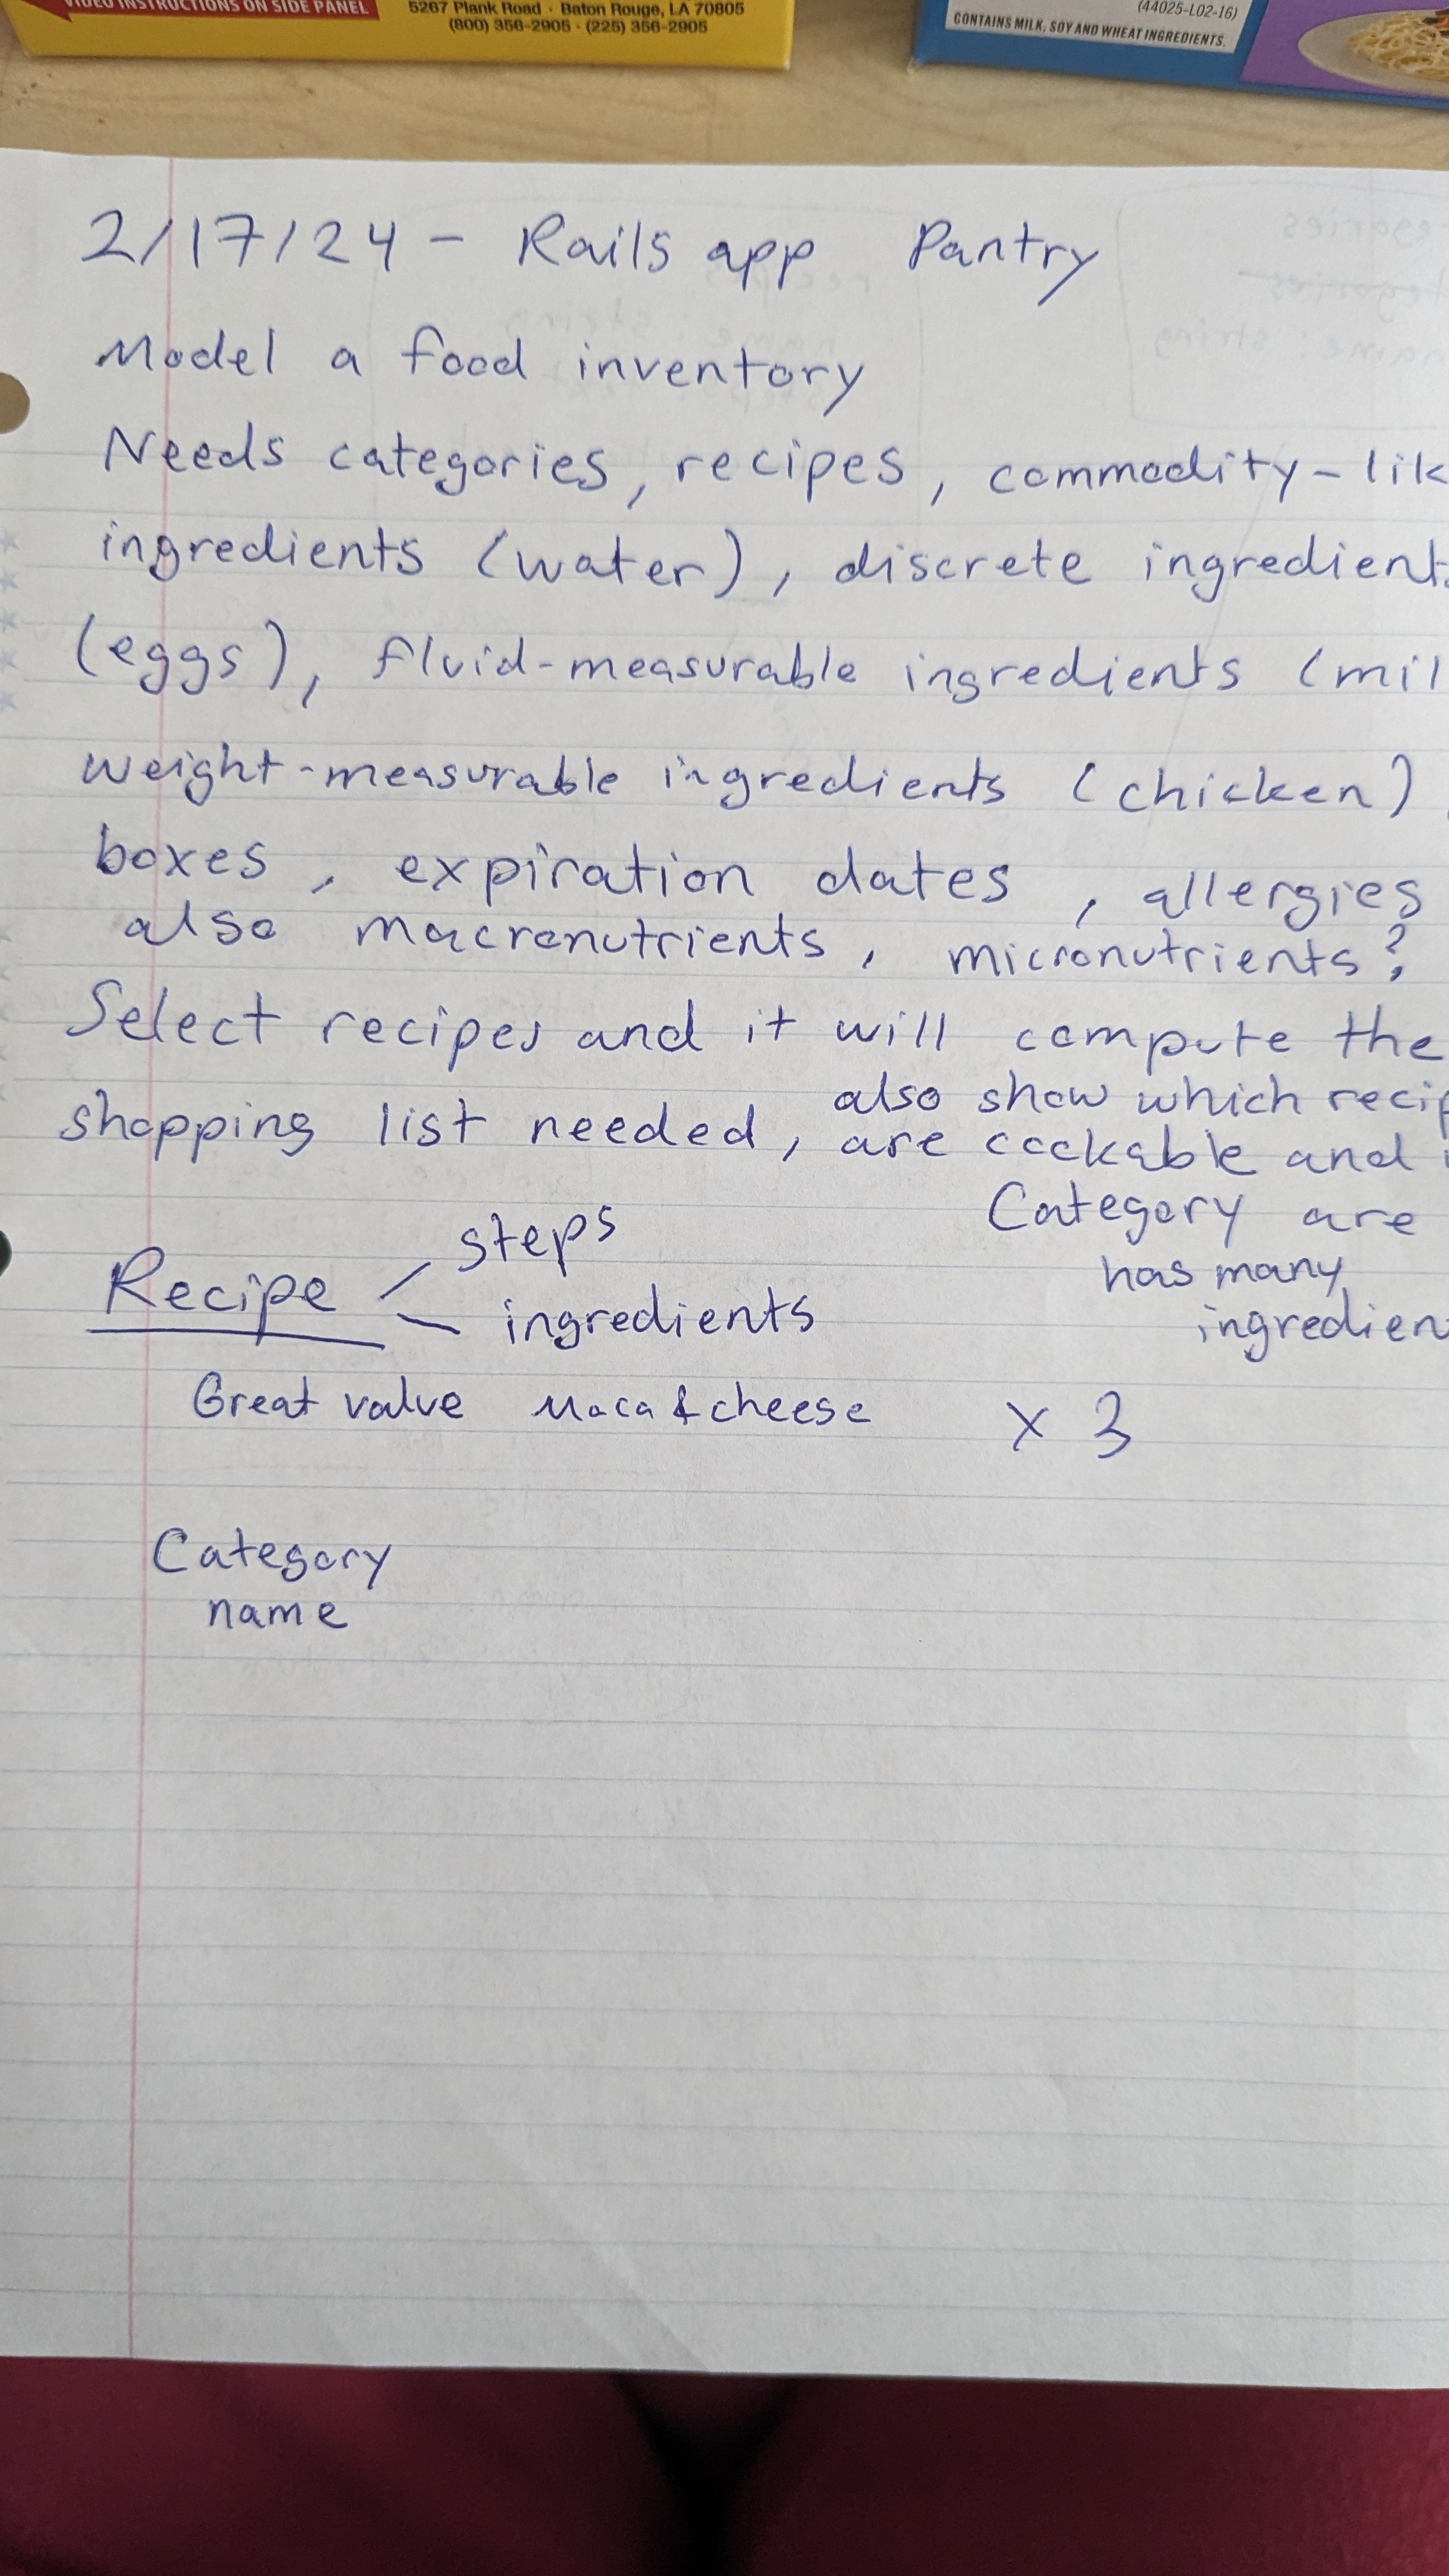 VIDEO INSTRUCTIONS ON SIDE PANEL
5267 Plank Road · Baton Rouge, LA 70805
(800) 356-2905 · (225) 356-2905
(44025-L02-16)
CONTAINS MILK, SOY AND WHEAT INGREDIENTS.
2/17/24 - Rails app Pantry
Model a food inventory
Needs categories, recipes, commodity-lik
ingredients (water), discrete ingredient
(eggs), fluid-measurable ingredients (mil
weight-measurable ingredients (chicken)
boxes, expiration dates, allergies
also macronutrients, micronutrients?
Select recipes and it will compute the
shopping list needed, also show which recip
are cookable and
Category are
has many
ingredien
Recipe < steps
ingredients
Great value Maca & cheese x 3
Category
name